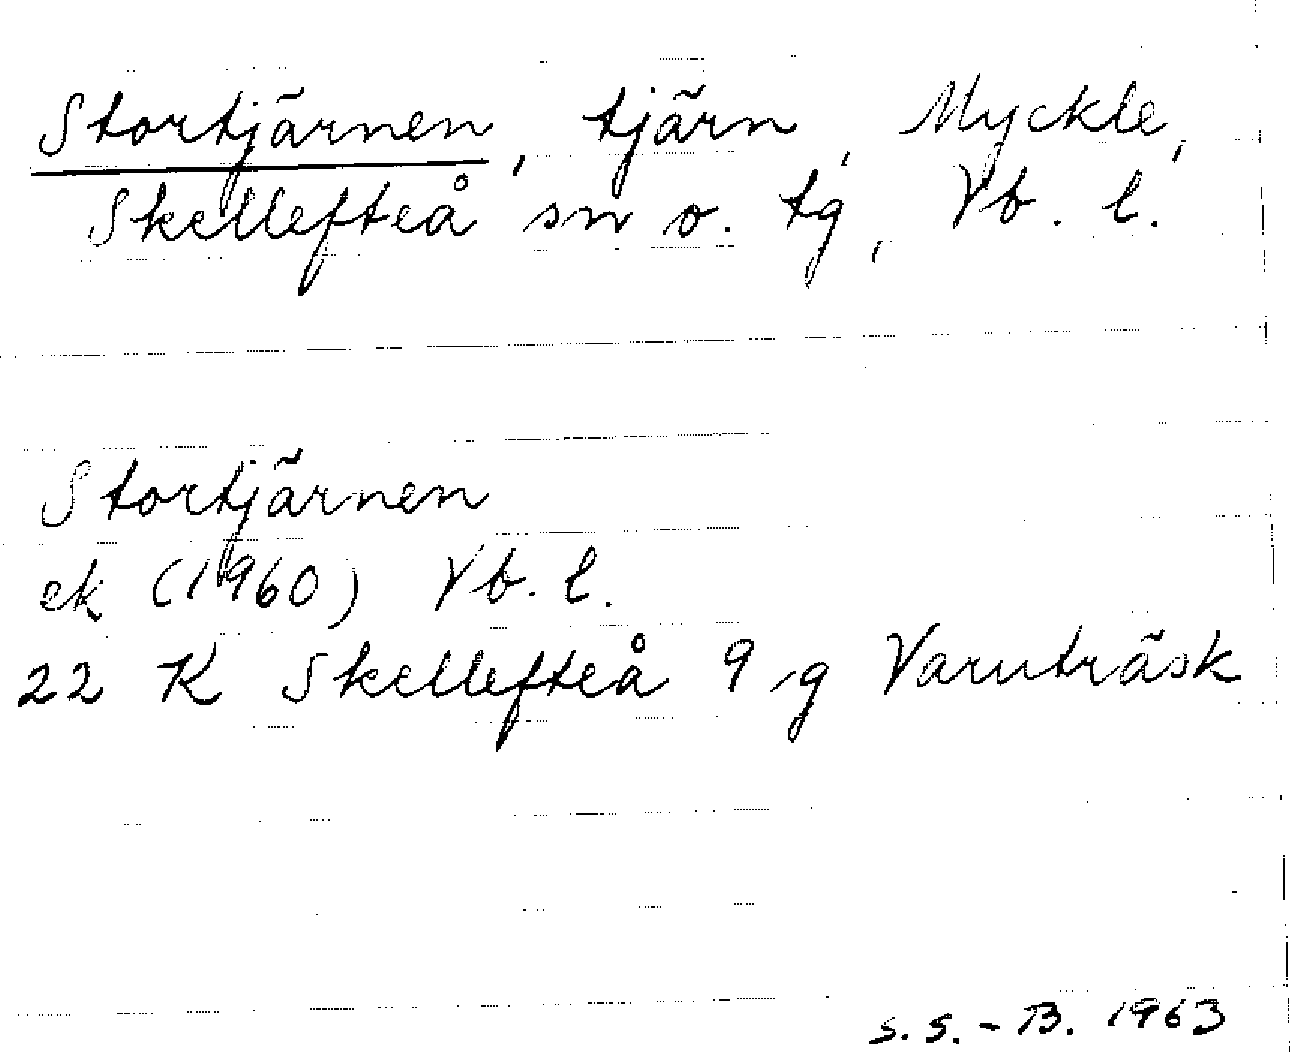 Stortjärnen, tjärn, Myckle,
Skellefteå sn o. tg, Vb. l.
Stortjärnen
ek (1960) Vb. l.
22 K Skellefteå 9 g Varuträsk
S. S. - B. 1963